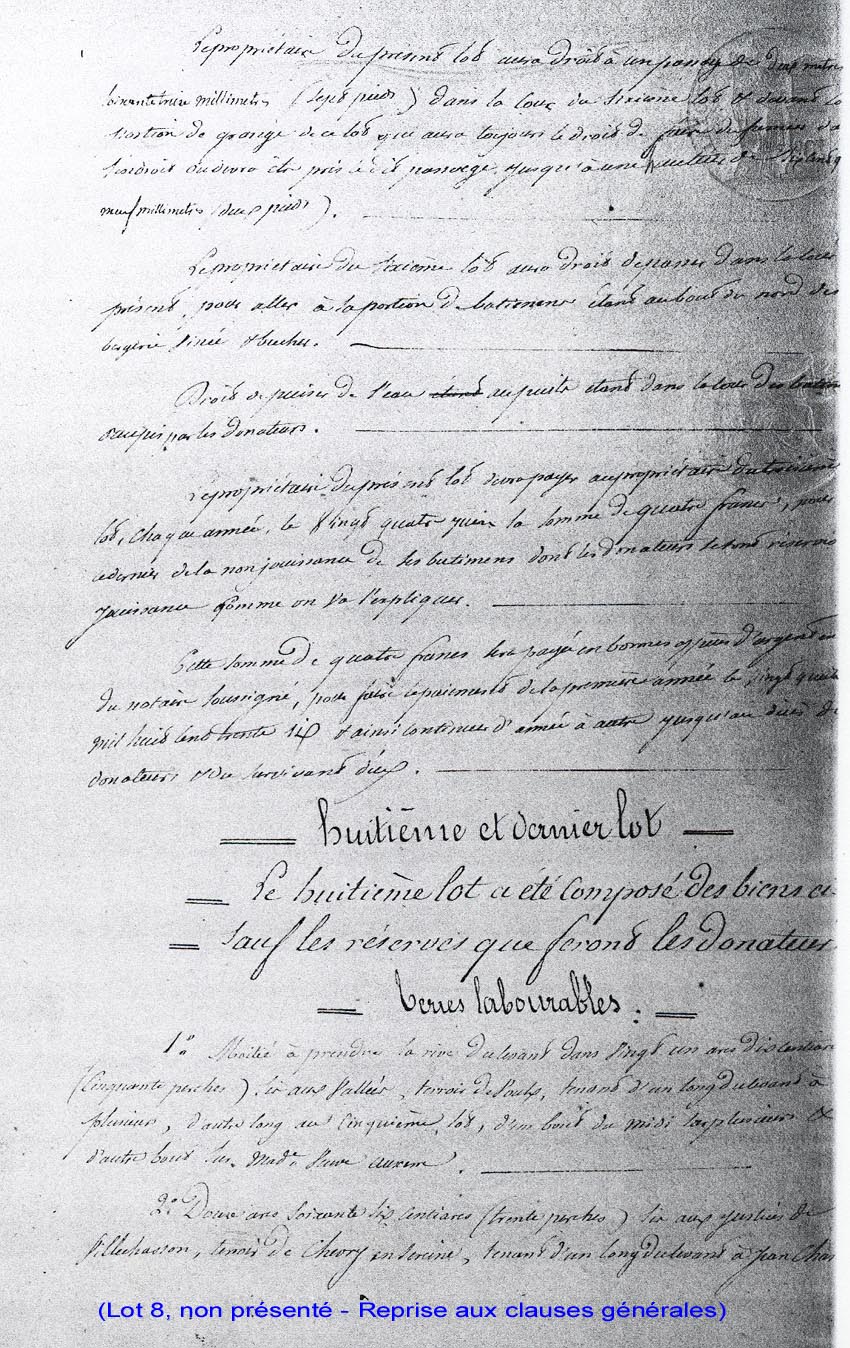 Le propriétaire du présent lot aura droit à un passage de deux mètres
soixante treize millimetres (sept pieds) dans la cour du sixieme lot et devant la
portion de grange de ce lot qui aura toujours le droit de faire du fumier à
l'endroit où devra être pris le dit passage, jusqu'à une de
neuf millimetres (deux pieds).
Le propriétaire du sixième lot aura droit de passer dans la cour
présent, pour aller à la portion de batiment étant au bout du nord des
bergerie sinée et bucher.
Droit de puiser de l'eau étant au puits étant dans la cour des batim
occupés par les donateurs.
Le propriétaire du présent lot devra payer au propriétaire du troisième
lot, chaque année, le vingt quatre juin la somme de quatre francs, pour
ce dernier de la non jouissance de ses batimens dont les donateurs se sont réservé
jouissance comme on va l'expliquer.
Cette somme de quatre francs sera payée en bonnes espèces d'argent en
du notaire soussigné, pour faire le paiement de la première année le vingt quatre
mil huit cent trente six et ainsi continuer d'année à autre jusqu'au décès de
donateurs et du survivant d'eux.
huitième et dernier lot
Le huitième lot a été composé des biens ci
sauf les réserves que feront les donateurs
Terres labourables.
1.° Moitié à prendre la rive du levant dans vingt un ares dix centiares
(Cinquante perches) sis aux Vallées, terroir de tenant d'un long du levant à
plusieurs, d'autre long au Cinquième lot, d'un bout du midi sur plusieurs et
d'autre bout sur Mad.e
2.° Douze ares soixante six centiares (trente perches) sis aux Justices de
Villechasson, terroir de Chevry en Sereine, tenant d'un long du levant à Jean Char
(Lot 8, non présenté - Reprise aux clauses générales)